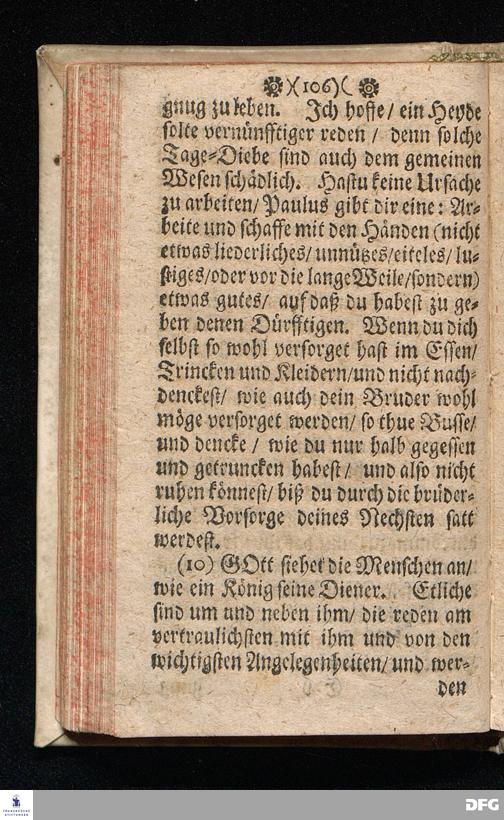 )(106)(
gnug zu leben. Ich hoffe/ ein Heyde
solte vernünfftiger reden / denn solche
Tage-Diebe sind auch dem gemeinen
Wesen schädlich. Hastu keine Ursache
zu arbeiten/ Paulus gibt dir eine: Ar-
beite und schaffe mit den Händen (nicht
etwas liederliches/ unnützes/ eiteles/ lu-
stiges/ oder vor die lange Weile/ sondern)
etwas gutes/ auf daß du habest zu ge-
ben denen Dürfftigen. Wenn du dich
selbst so wohl versorget hast im Essen/
Trincken und Kleidern/ und nicht nach-
denckest/ wie auch dein Bruder wohl
möge versorget werden/ so thue Busse/
und dencke / wie du nur halb gegessen
und getruncken habest/ und also nicht
ruhen könnest/ biß du durch die brüder-
liche Vorsorge deines Nechsten satt
werdest.
(10) GOtt siehet die Menschen an/
wie ein König seine Diener. Etliche
sind um und neben ihm/ die reden am
vertraulichsten mit ihm und von den
wichtigsten Angelegenheiten/ und wer-
den
FRANCKESCHE
STIFTUNGEN
DFG